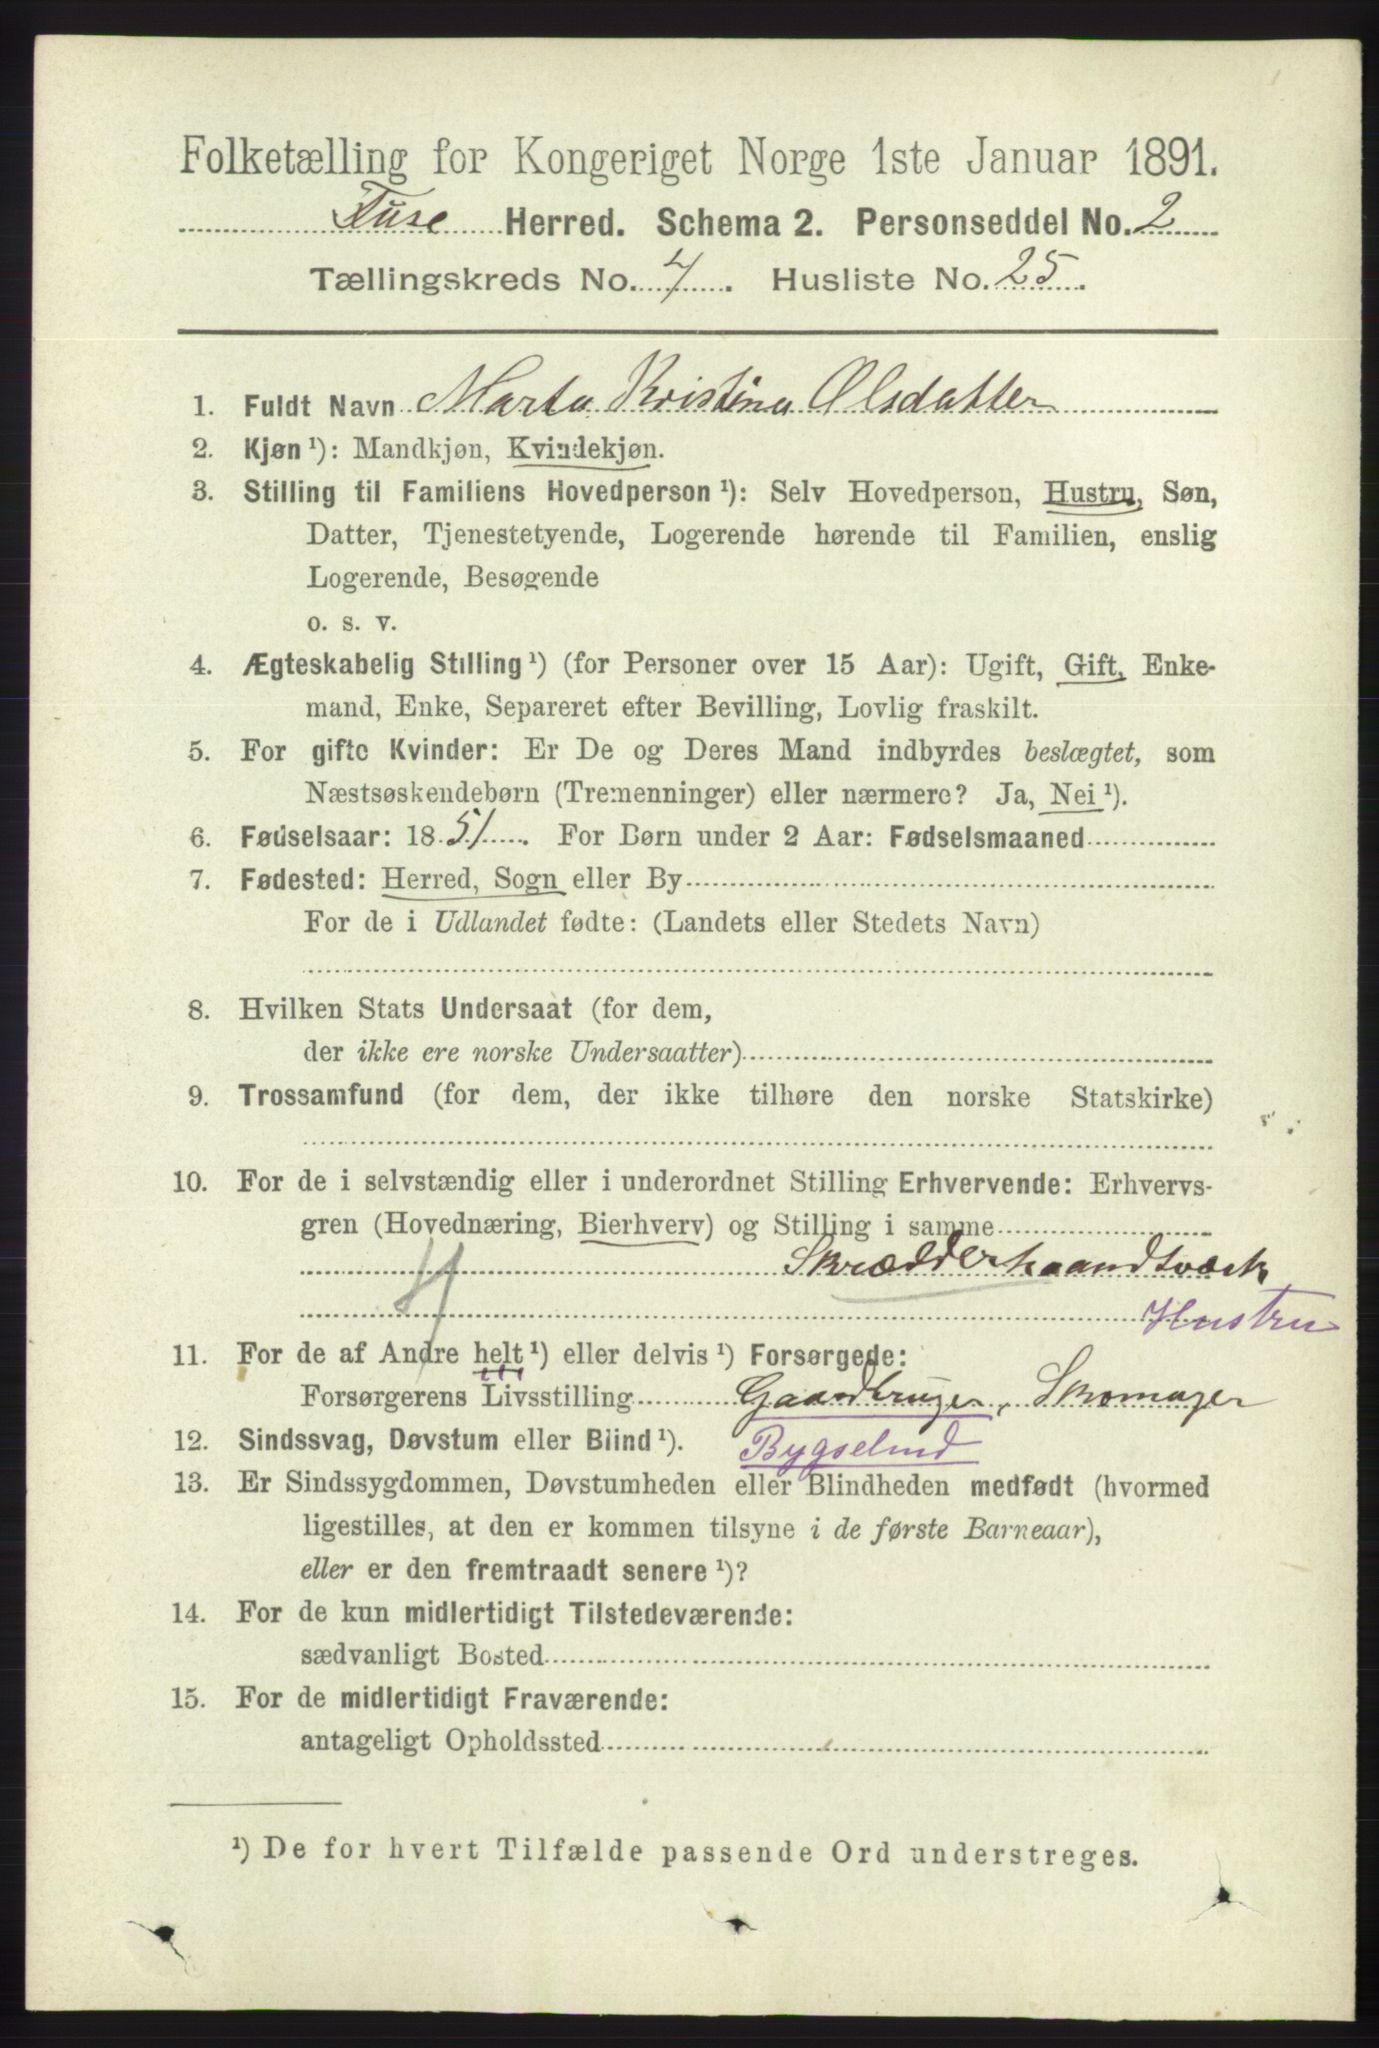 Folketælling for Kongeriget Norge 1ste Januar 1891.
Fuse Herred. Schema 2. Personseddel No. 2
Tællingskreds No. 4. Husliste No. 25.
1. Fuldt Navn Marta Kristina Olsdatter
2. Kjøn ¹): Mandkjøn, Kvindekjøn.
3. Stilling til Familiens Hovedperson ¹): Selv Hovedperson, Hustru, Søn,
Datter, Tjenestetyende, Logerende hørende til Familien, enslig
Logerende, Besøgende
o. s. v.
4. Ægteskabelig Stilling ¹) (for Personer over 15 Aar): Ugift, Gift, Enke-
mand, Enke, Separeret efter Bevilling, Lovlig fraskilt.
5. For gifte Kvinder: Er De og Deres Mand indbyrdes beslægtet, som
Næstsøskendebørn (Tremenninger) eller nærmere? Ja, Nei ¹).
6. Fødselsaar: 1851. For Børn under 2 Aar: Fødselsmaaned
7. Fødested: Herred, Sogn eller By
For de i Udlandet fødte: (Landets eller Stedets Navn)
8. Hvilken Stats Undersaat (for dem,
der ikke ere norske Undersaatter)
9. Trossamfund (for dem, der ikke tilhøre den norske Statskirke)
10. For de i selvstændig eller i underordnet Stilling Erhvervende: Erhvervs-
gren (Hovednæring, Bierhverv) og Stilling i samme
Skrædderhaandtværk
Hustru
11. For de af Andre helt ¹) eller delvis ¹) Forsørgede:
Forsørgerens Livsstilling Gaardbruger, Skomager
12. Sindssvag, Døvstum eller Blind ¹). Bygselmd
13. Er Sindssygdommen, Døvstumheden eller Blindheden medfødt (hvormed
ligestilles, at den er kommen tilsyne i de første Barneaar),
eller er den fremtraadt senere ¹)?
14. For de kun midlertidigt Tilstedeværende:
sædvanligt Bosted
15. For de midlertidigt Fraværende:
antageligt Opholdssted
¹) De for hvert Tilfælde passende Ord understreges.